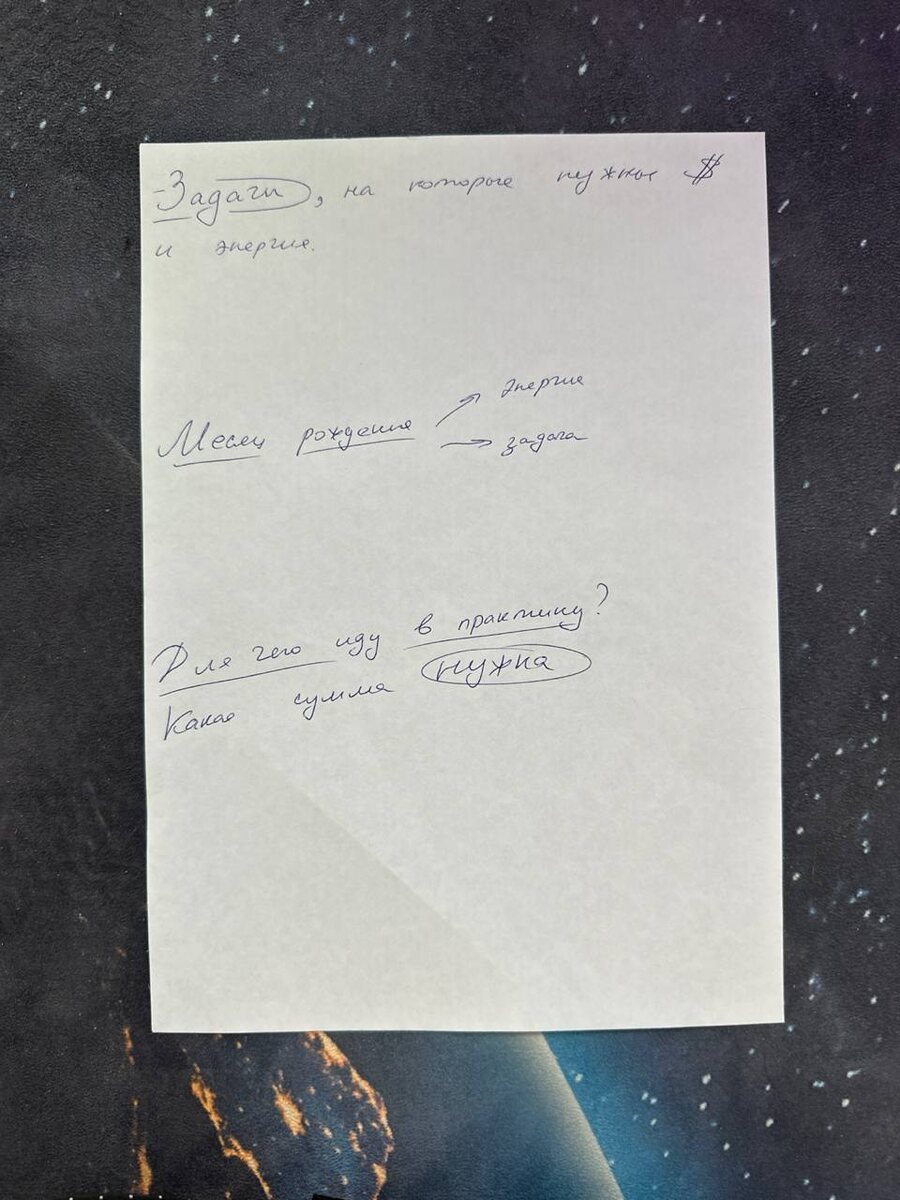 - Задачи, на которые нужны $
и энергия.
Месяц рождения → энергия
→ задача
Для чего иду в практику?
Какая сумма нужна